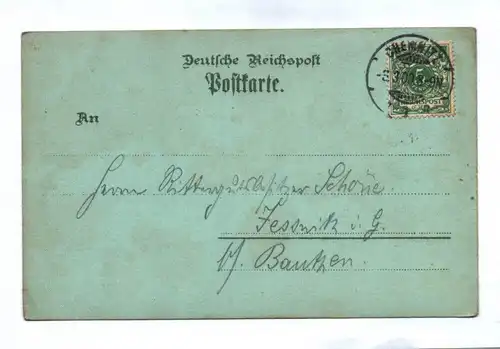 Deutsche Reichspost
Postkarte.
CHEMNITZ
REICHSPOST
An
Herrn Rittergutsbesitzer Schöne
Jessnitz i. G.
b/ Bautzen.